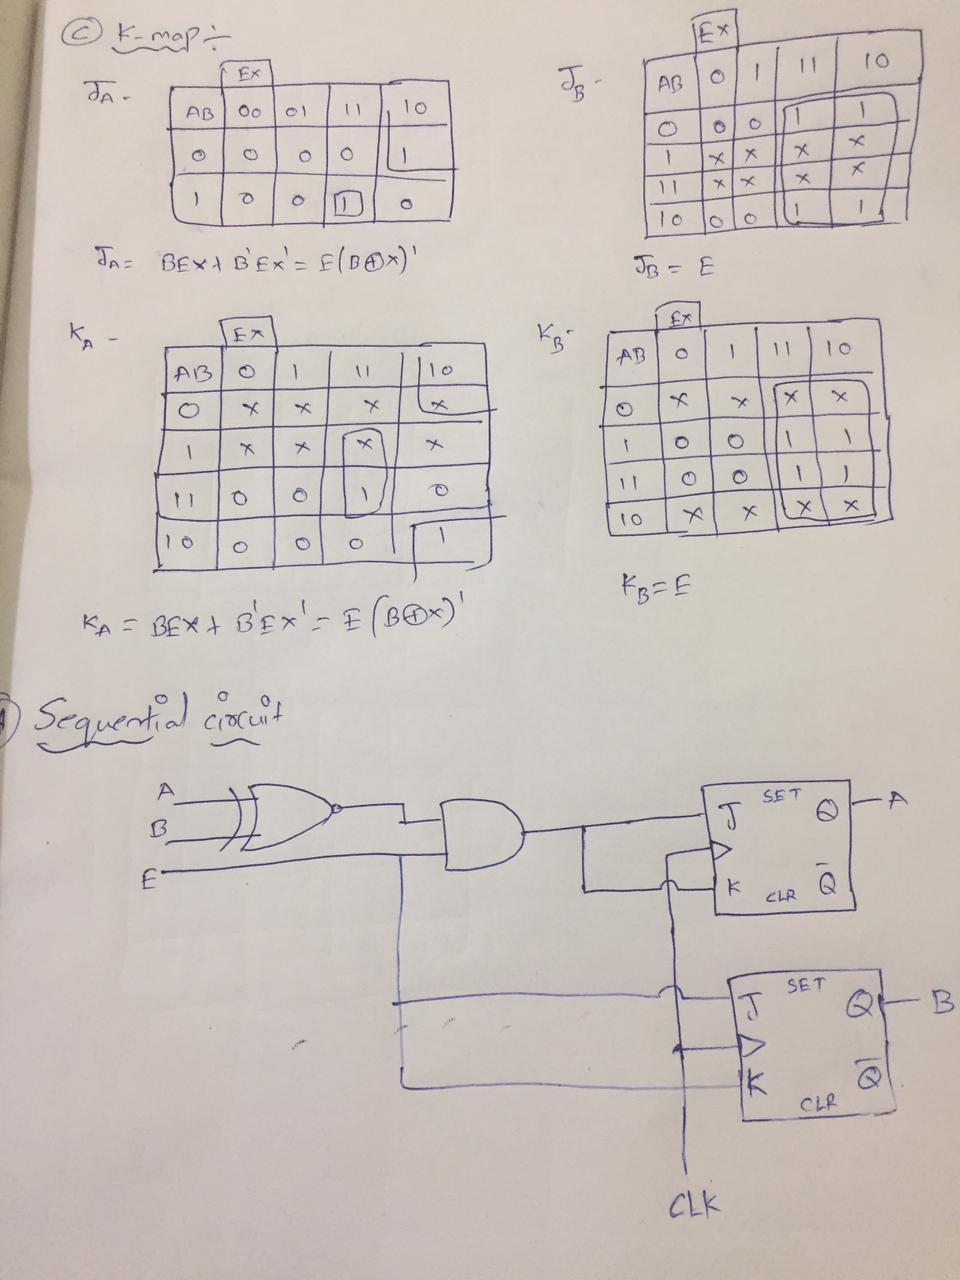 C K-map :-
JA -
Ex
AB 00 01 11 10
0 0 0 0 1
1 0 0 1 0
JA = BEx + B'Ex' = E(B⊕x)'
JB -
Ex
AB 0 1 11 10
0 0 0 1 1
1 x x x x
11 x x x x
10 0 0 1 1
JB = E
KA -
Ex
AB 0 1 11 10
0 x x x x
1 x x x x
11 0 0 1 0
10 0 0 0 1
KA = BEx + B'Ex' = E(B⊕x)'
KB -
Ex
AB 0 1 11 10
0 x x x x
1 0 0 1 1
11 0 0 1 1
10 x x x x
KB = E
Sequential circuit
A
B
E
J SET Q A
K CLR Q̅
J SET Q B
K CLR Q̅
CLK